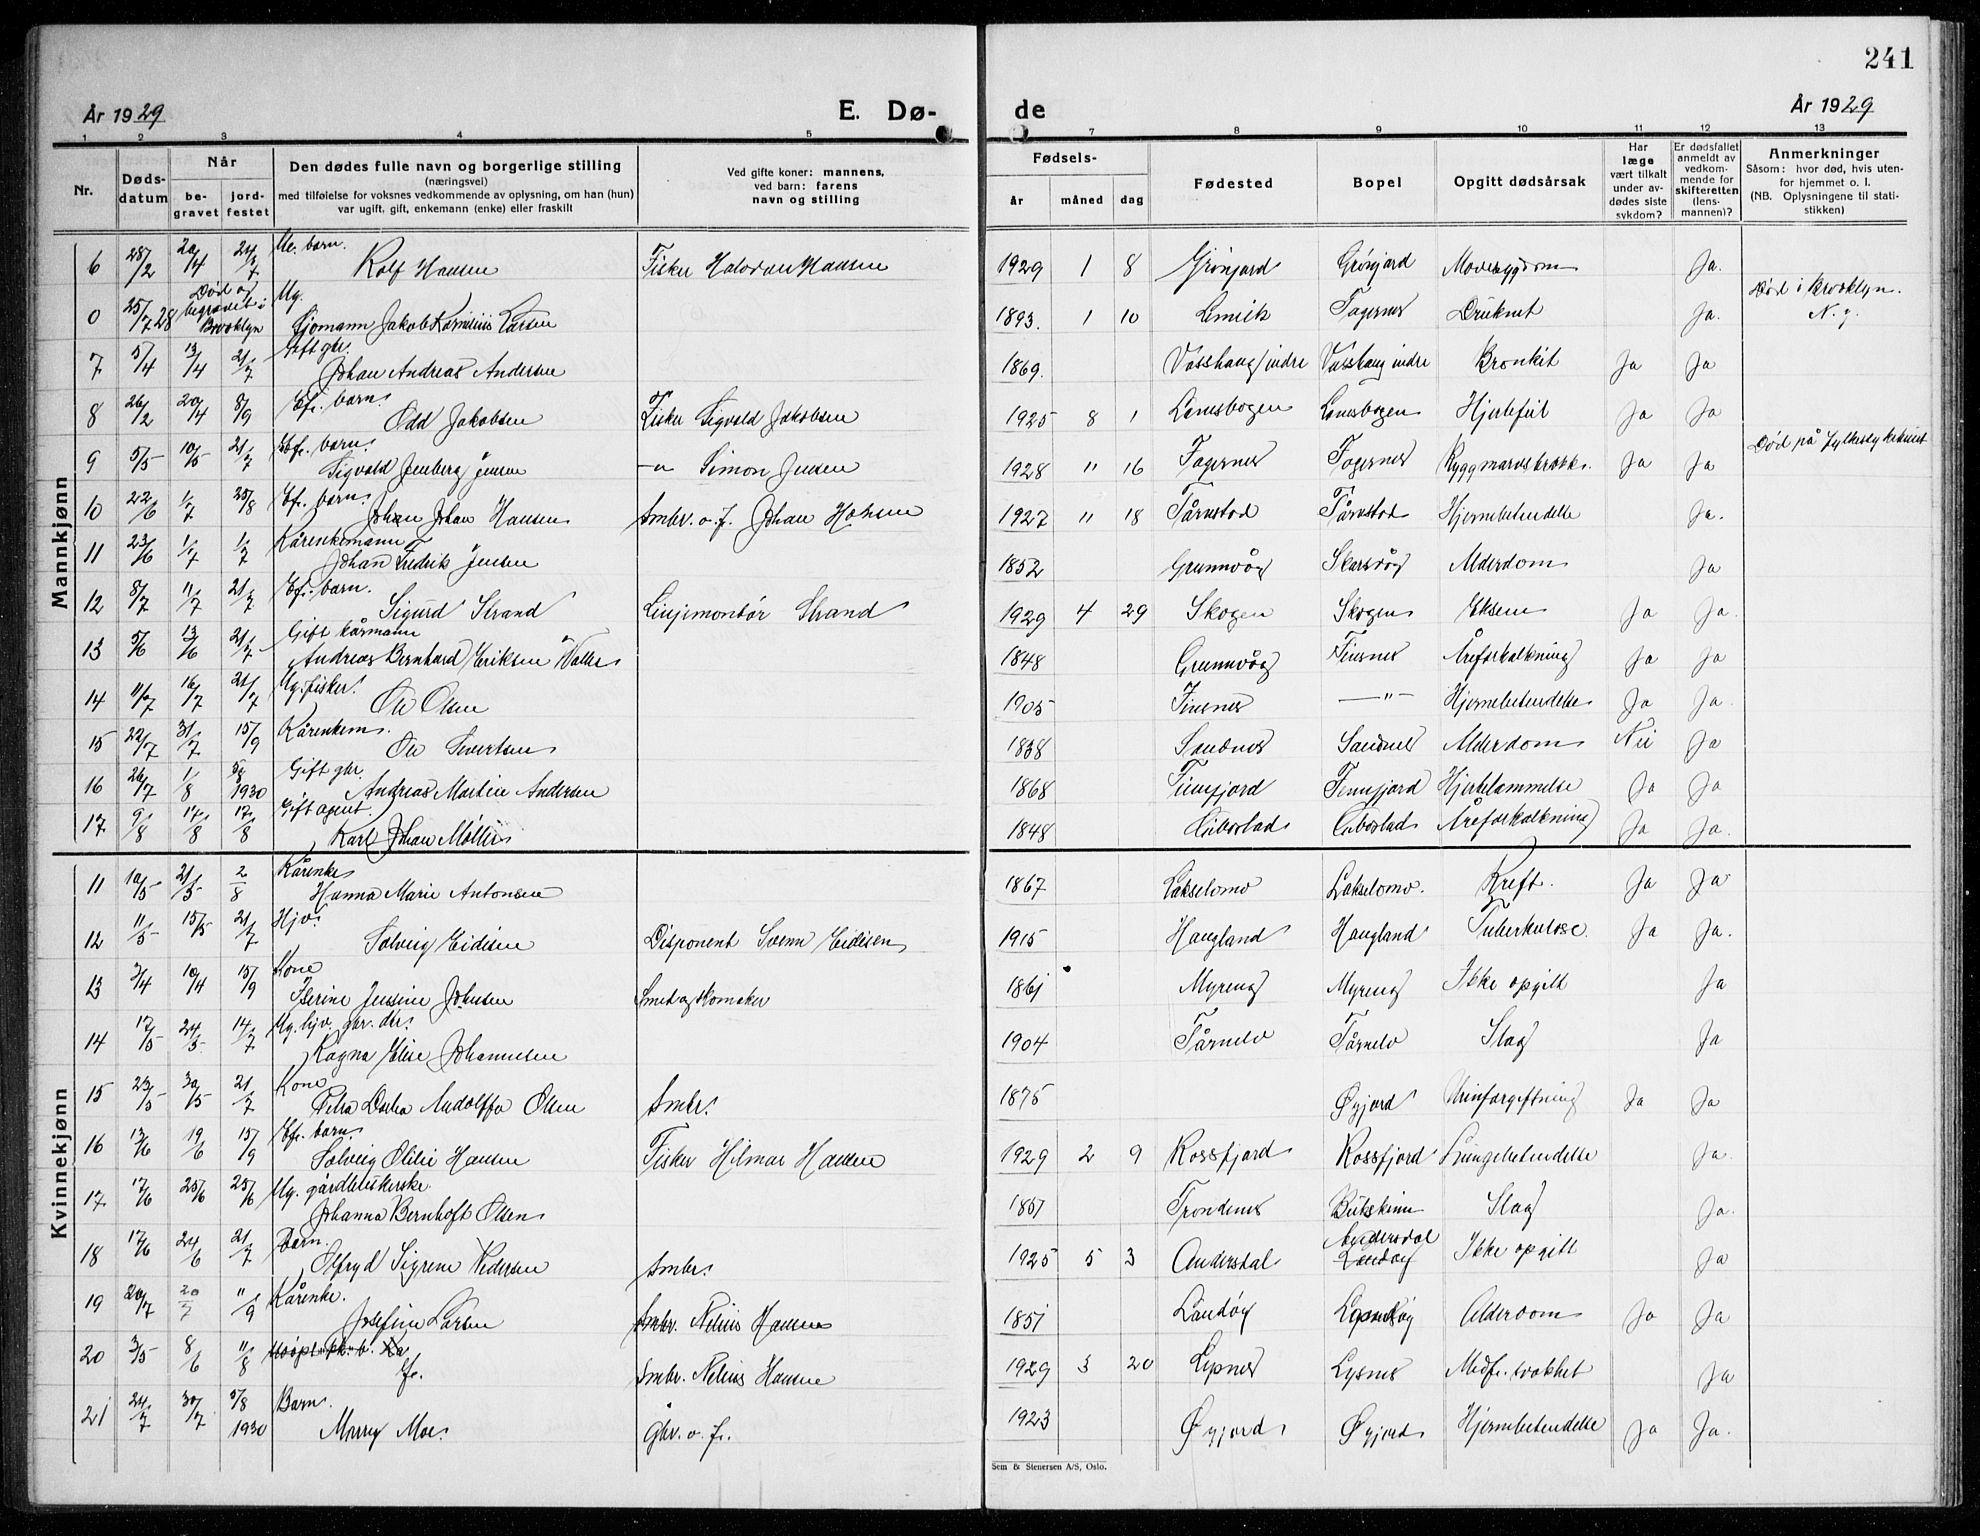 241
År 1929 E. Dø- de År 1929
1 2 3 4 5 7 8 9 10 11 12 13
Nr. Døds-datum Når be-gravet jord-festet Den dødes fulle navn og borgerlige stilling (næringsvei) med tilføielse for voksnes vedkommende av oplysning, om han (hun) var ugift, gift, enkemann (enke) eller fraskilt Ved gifte koner: mannens, ved barn: farens navn og stilling Fødsels- år måned dag Fødested Bopel Opgitt dødsårsak Har læge vært tilkalt under av-dødes siste sykdom? Er dødsfallet anmeldt av vedkom-mende for skifteretten (lens-mannen)? Anmerkninger Såsom: hvor død, hvis uten-for hjemmet o. l. (NB. Oplysningene til stati-stikken)
Mannkjønn
6 28/2 20/4 21/7 Ue. barn. Rolf Hansen Fisker Halvdan Hansen 1929 1 8 Grønjord Grønjord Ja.
0 25/7 28 Død og begravet i Brooklyn Ug. Sjømann Jakob Kornelius Larsen 1893. 1 10 Lenvik Fagernes Druknet Ja. Død i Brooklyn. N. y.
7 5/4 13/4 21/7 Gift gbr. Johan Andreas Andersen 1869. Vasshaug indre Vasshaug indre Bronkit Ja Ja
8 26/2 20/4 8/9 Ef. barn. Odd Jakobsen Fisker Sigvald Jakobsen 1925 8 1 Lanesbogen Lanesbogen Hjertefeil Ja Ja
9 5/5 10/5 21/7 Ef. barn. Sigvald Jenberg Jensen -"- Simon Jensen 1928 11 16 Fagernes Fagernes Ryggmarvsbrokk. Ja Ja Død på fylkessykehuset
10 22/6 1/7 25/8 Ef. barn. Johan Johan Hansen Smbr. o. f. Johan Hansen 1927 11 18 Tårnstad Tårnstad Hjernebetendelse Ja.
11 23/6 1/7 1/7 Kårenkemann Johan Fredrik Jensen 1852 Grunnvåg Skarsvåg Alderdom Ja
12 8/7 11/7 21/7 Ef. barn. Sigurd Strand Linjemontør Strand 1929 4 29 Skogen Skogen Eksem Ja Ja.
13 5/6 13/6 21/7 Gift kårmann Andreas Bernhard Eriksen 1848 Grunnvåg Finsnes Åreforkalkning Ja Ja
14 11/7 16/7 21/7 Ug. fisker. Ole Olsen 1905 Finsnes -"- Hjernebetendelse Ja Ja.
15 22/7 31/7 15/9 Kårenkem. Ole Sivertsen 1838 Sandnes Sandnes Alderdom Nei Ja
16 26/7 1/8 5/8 1930 Gift gbr. Andreas Martin Andersen 1868 Finnfjord Finnfjord Hjertelammelse Ja Ja
17 9/8 17/8 17/8 Gift agent. Karl Johan Møller 1848 Gibostad Gibostad Åreforkalkning Ja Ja.
Kvinnekjønn
11 10/5 21/5 2/8 Kårenke Hanna Marie Antonsen 1867 Lakselvmo Lakselvmo. Kreft. Ja Ja
12 11/5 15/5 21/7 Hjv. Solveig Eidisen Disponent Svenn Eidisen 1915 Haugland Haugland Tuberkulose. Ja Ja.
13 3/4 10/4 15/9 Kone Iserine Jensine Johnsen Smed og skomaker 1861 Myreng Myreng Ikke opgitt Ja
14 17/5 24/5 14/7 Ug. hjv. gbr. dtr. Ragna Elise Johannesen 1904 Tårnelv Tårnelv Slag Ja
15 23/5 30/5 21/7 Kone Petra Dorthea Andolffa Olsen Smbr. 1875 Øyjord Urinforgiftning Ja Ja
16 13/6 19/6 15/9 Ef. barn. Solveig Olilie Hansen Fisker Hilmar Hansen 1929 2 9 Rossfjord Rossfjord Lungebetendelse Ja.
17 17/6 25/6 25/6 Ug. gårdbeskerske. Johanna Bernhoft Olsen 1851 Trondenes Bukskinn Slag Ja.
18 17/6 24/6 21/7 Barn. Olfryd Sigrene Pedersen Smbr. 1925 5 3 Andersdal Andersdal Ikke opgitt Ja
19 20/7 20/7 11/9 Kårenke. Josefine Larsen Smbr. Nelius Hansen 1851 Landøy Alderdom Ja Ja
20 3/5 8/6 11/8 Ef. Smbr. Nelius Hansen 1929 3 20 Lysnes Lysnes Medf. svakhet Ja
21 24/7 30/7 5/8 1930 Barn. Moe. Gbr. o. f. 1923 Øyjord Øyjord Hjernebetendelse Ja Ja.
Sem & Stenersen A/S, Oslo.